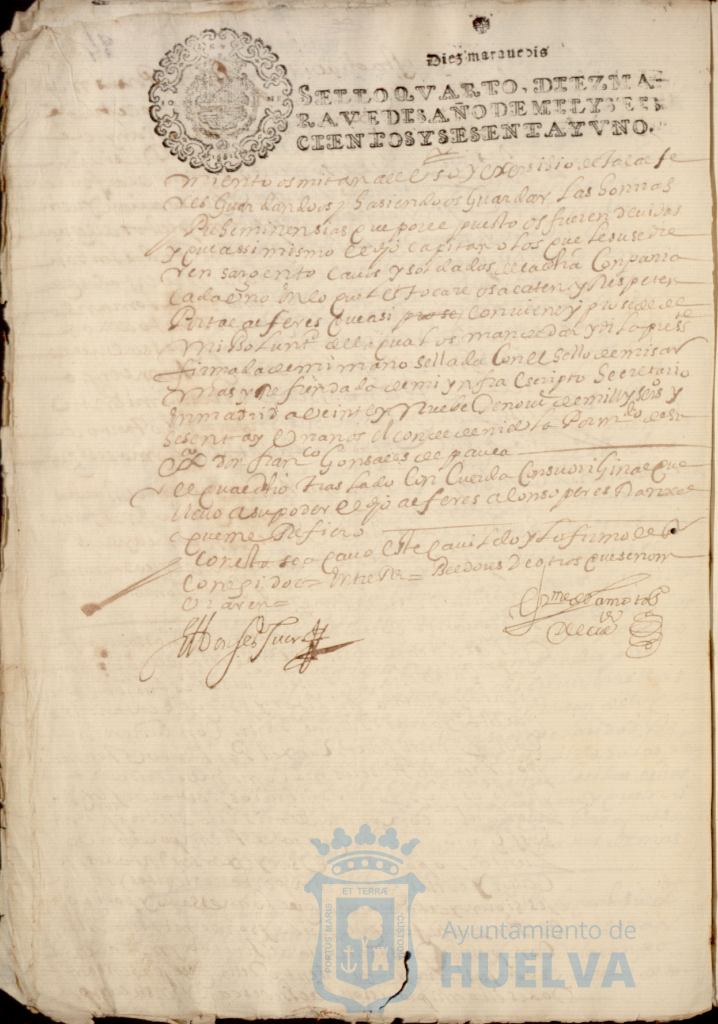 Diez marauedis
SELLO QVARTO, DIEZ MA-
RAVEDIS, AÑO DE MIL Y SEIS
CIENTOS Y SESENTA Y VNO.
miento os mitan al Uso y exersisio de tal alfe
res guardandoos y hasiendoos guardar las honrras
Preheminensias que por el puesto os fueren devidas
y que assimismo el dho capitan o los que le susedie
ren sargento cavos y soldados de la dha Conpania
cada uno en lo que les tocare os acaten y Respeten
Por tal alferes que asi conviene y prosede de
mi Boluntd de lo qual os mande dar y di la presste
firmada de mi mano sellada con el sello de mis ar
mas y Refrendada de mi ynfra escripto Secretario
En madrid a Veinte y Nuebe de nove de mill y seiso y
sesenta y Un anos el conde de Por mdo de su
Ex Don franco Gonsales de
el qual dho traslado Con Cuerda Con su original que
llevo a su poder el dho alferes alonso peres
a que me Refiero
Con esto se acavo este cavildo y lo firmo el
Corregidor = entre Rs = de otros que se nom
braren =
ET TERRÆ
PORTUS MARIS
CUSTODIA
Ayuntamiento de
HUELVA